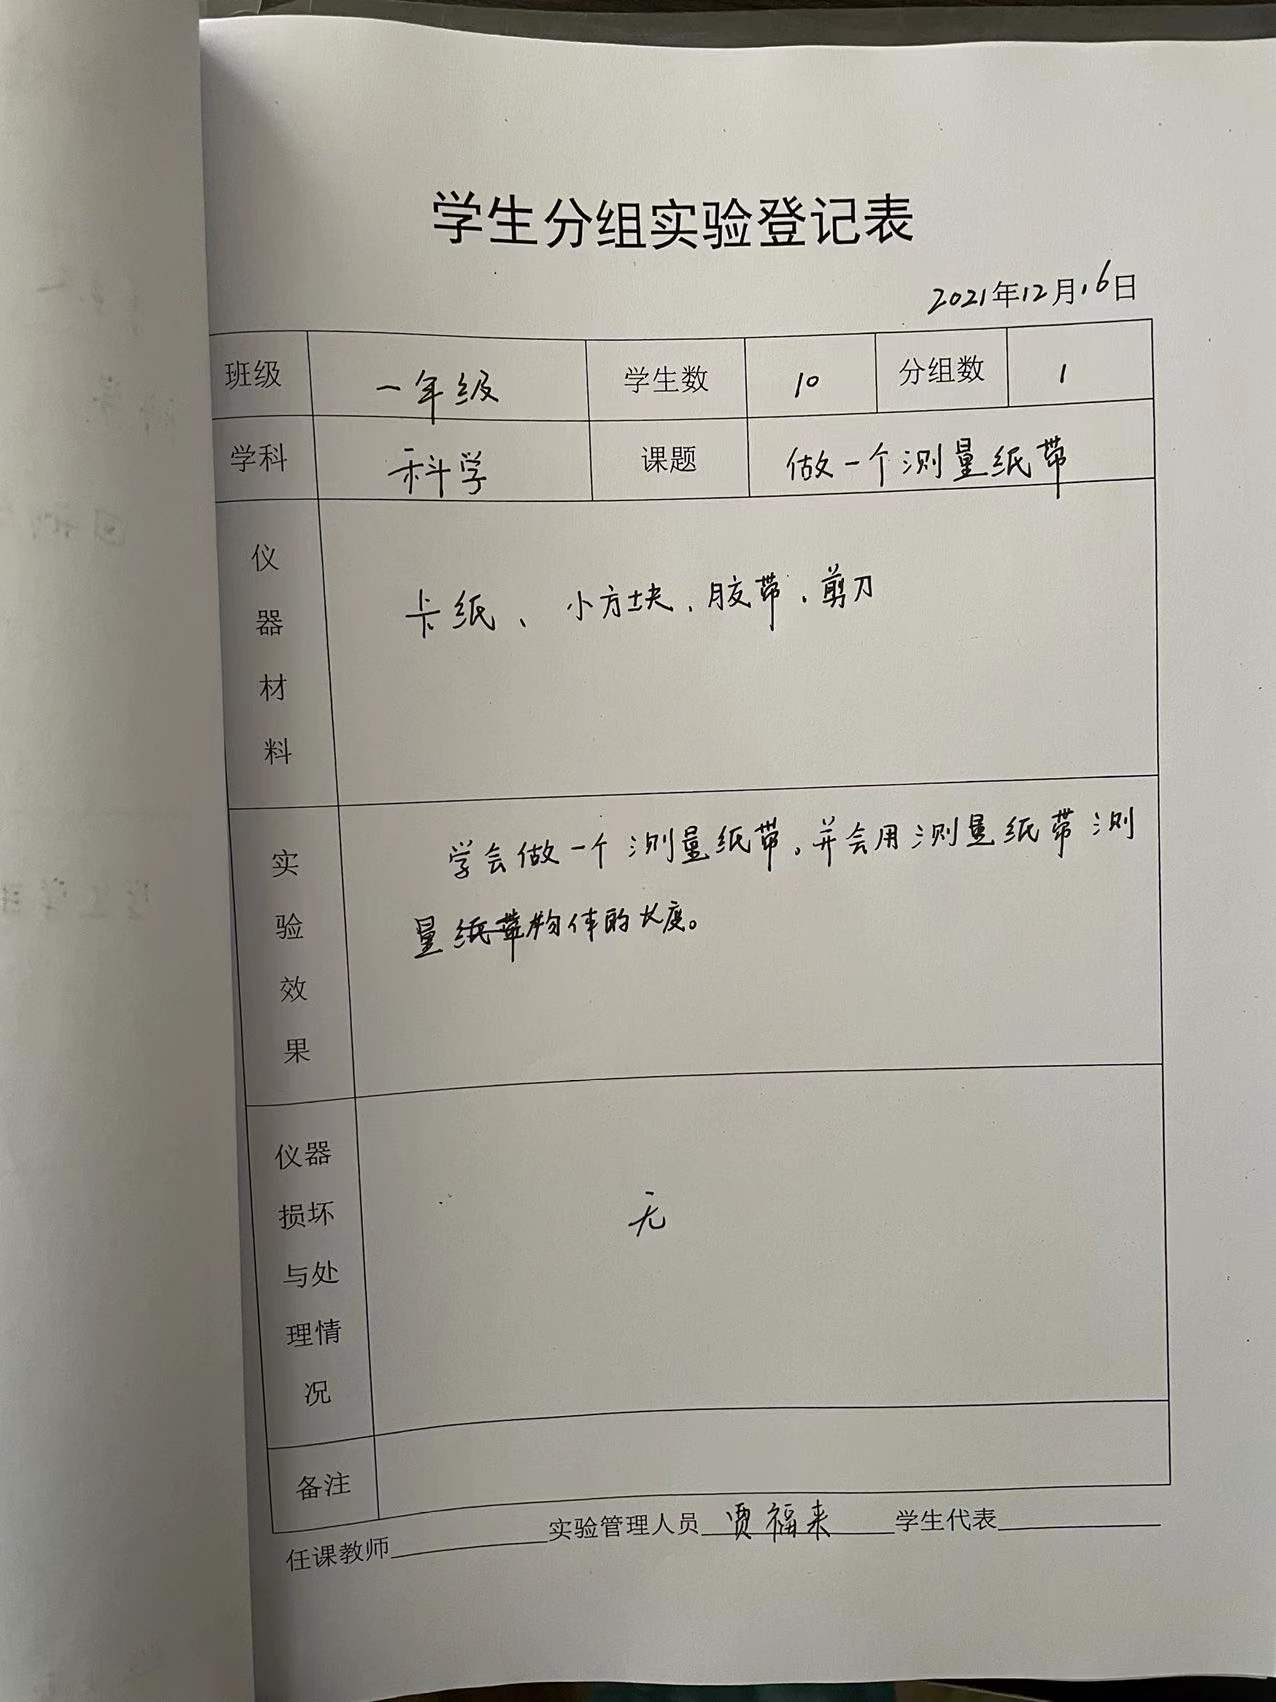 学生分组实验登记表
2021年12月16日
班级 一年级 学生数 10 分组数 1
学科 科学 课题 做一个测量纸带
仪器材料 卡纸、小方块、胶带、剪刀
实验效果 学会做一个测量纸带,并会用测量纸带测
量纸带物体的长度。
仪器
损坏
与处
理情
况
无
备注
任课教师 实验管理人员 贾福来 学生代表